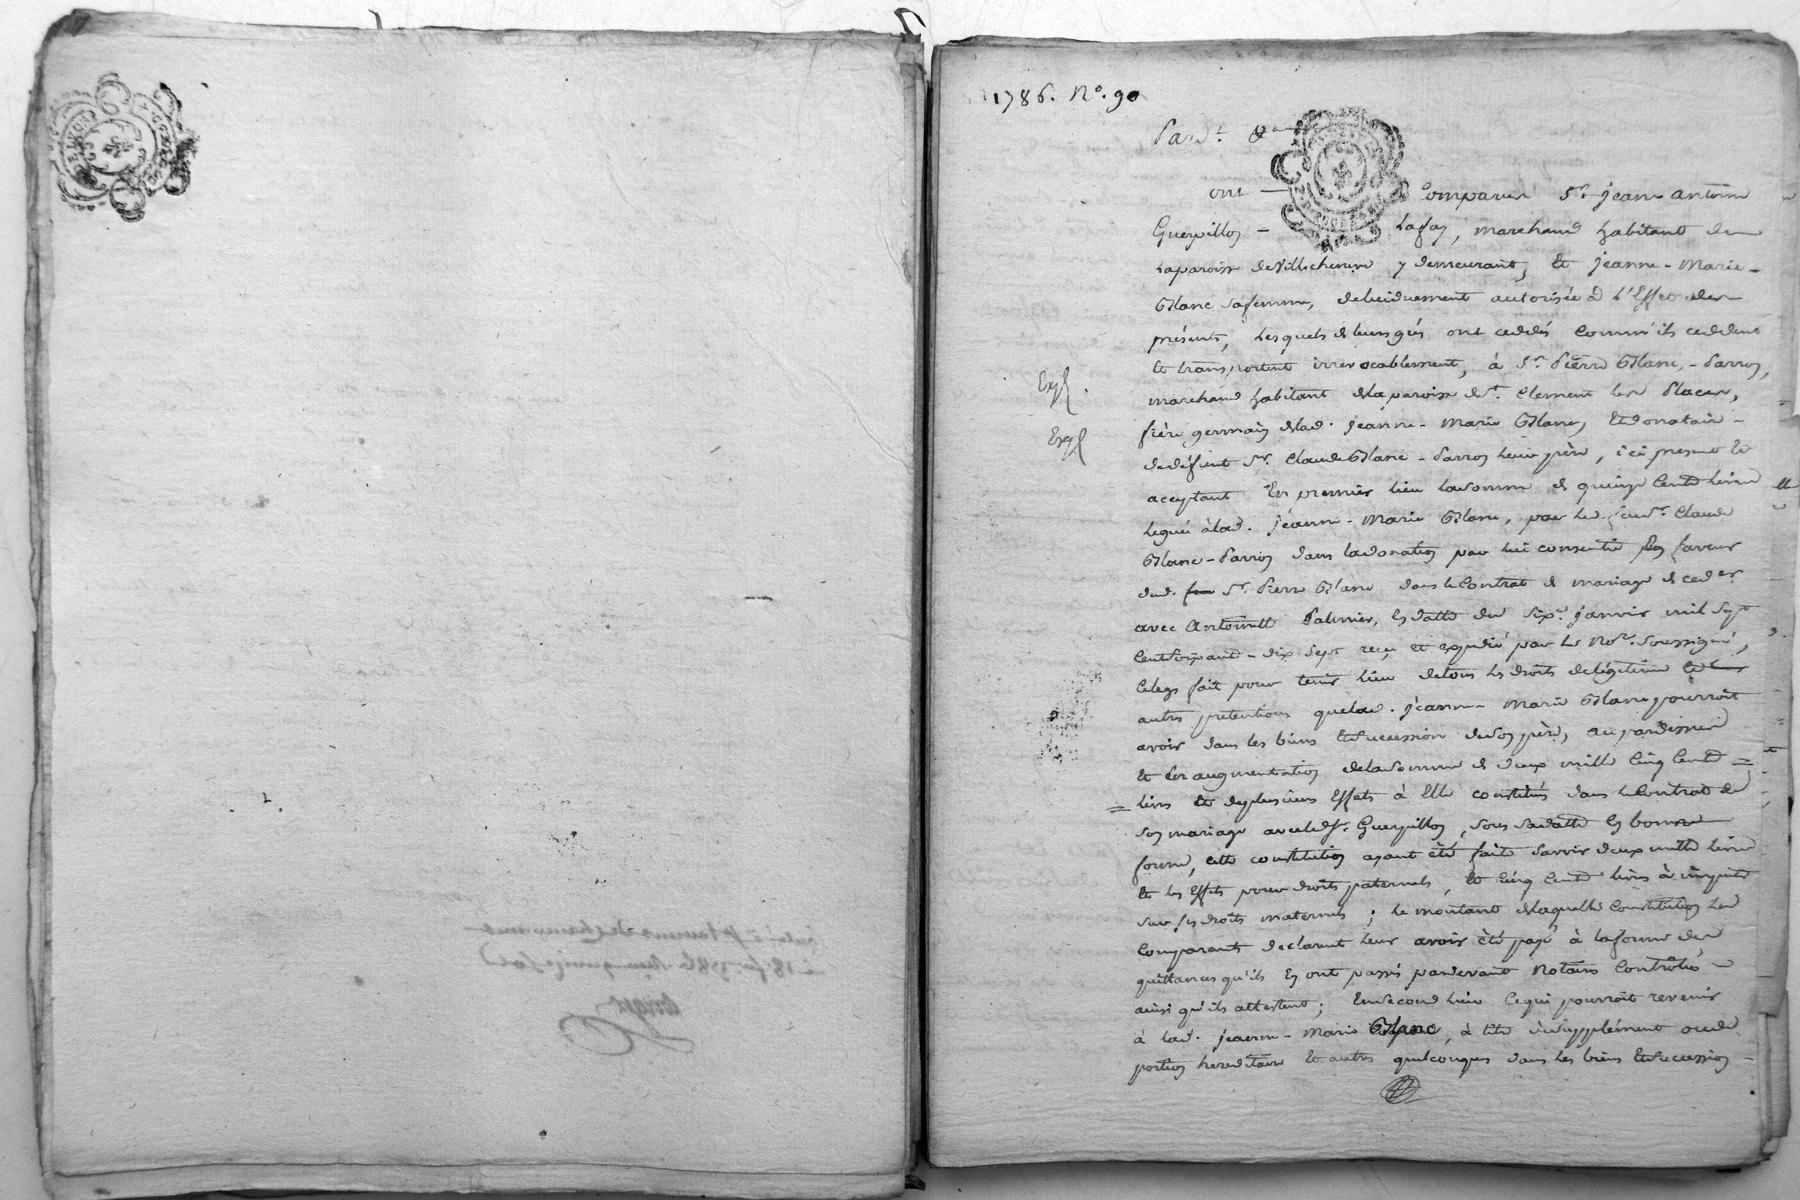 1786. N°. 90
Pard.t &a
ont — Comparus Sr. jean antoine
Guerpillon - Lafay, marchand habitant de
la paroisse de Villecheneve y demeurant, Et jeanne - Marie -
Blanc sa femme, de lui duement autorisée à L'Effet des
présents, Lesquels de leurs grés ont ceddés Comm'ils ceddent
Et transportent irrevocablement, à Sr. Pierre Blanc, - Parron,
Exp.
marchand habitant de la paroisse de St. Clement les Places,
Exp
frère germain de lad. jeanne - Marie Blanc, Et donataire -
de défunt Sr. Claude Blanc - Parron Leur père, ici present Et
aceptant En premier Lieu la somme de quinze Cents Livres
Legué à lad. jeanne - Marie Blanc, par led. feu Sr. Claude
Blanc - Parron dans la donation par lui consentie En faveur
dud. Sr. Pierre Blanc dans le Contrat de mariage de ced.er
avec Antoinette Palmier, En datte du Six.e janvier mil Sept
Cent Soixante - dix Sept reçu et expedié par le Nore. Soussigné,
Ce legs fait pour tenir Lieu de tous les droits de légitime Et
autres pretentions que lad. jeanne - Marie Blanc pourroit
avoir dans les biens Et Succession de son père, au pardessus
Et En augmentation de la Somme de deux mille Cinq Cents =
= Livres Et de plusieurs Effets à Elle constitués dans le Contrat de
Son mariage avec led. Sr. Guerpillon, Sous Sa datte En bonne
forme, cette constitution ayant été faite Savoir deux mille Livres
Et les Effets pour droits paternels, Et Cinq Cents Livres à imputer
Sur ses droits maternels ; Le montant de laquelle Constitution Les
Comparants declarent Leur avoir été payé à la forme des
quittances qu'ils En ont passés pardevant Notaires Contrôlés
ainsi qu'ils attestent ; En second Lieu Ce qui pourroit revenir
à lad. jeanne - Marie Blanc, à titre de Supplément ou de
portion hereditaire Et autres quelconques dans les biens Et Succession -